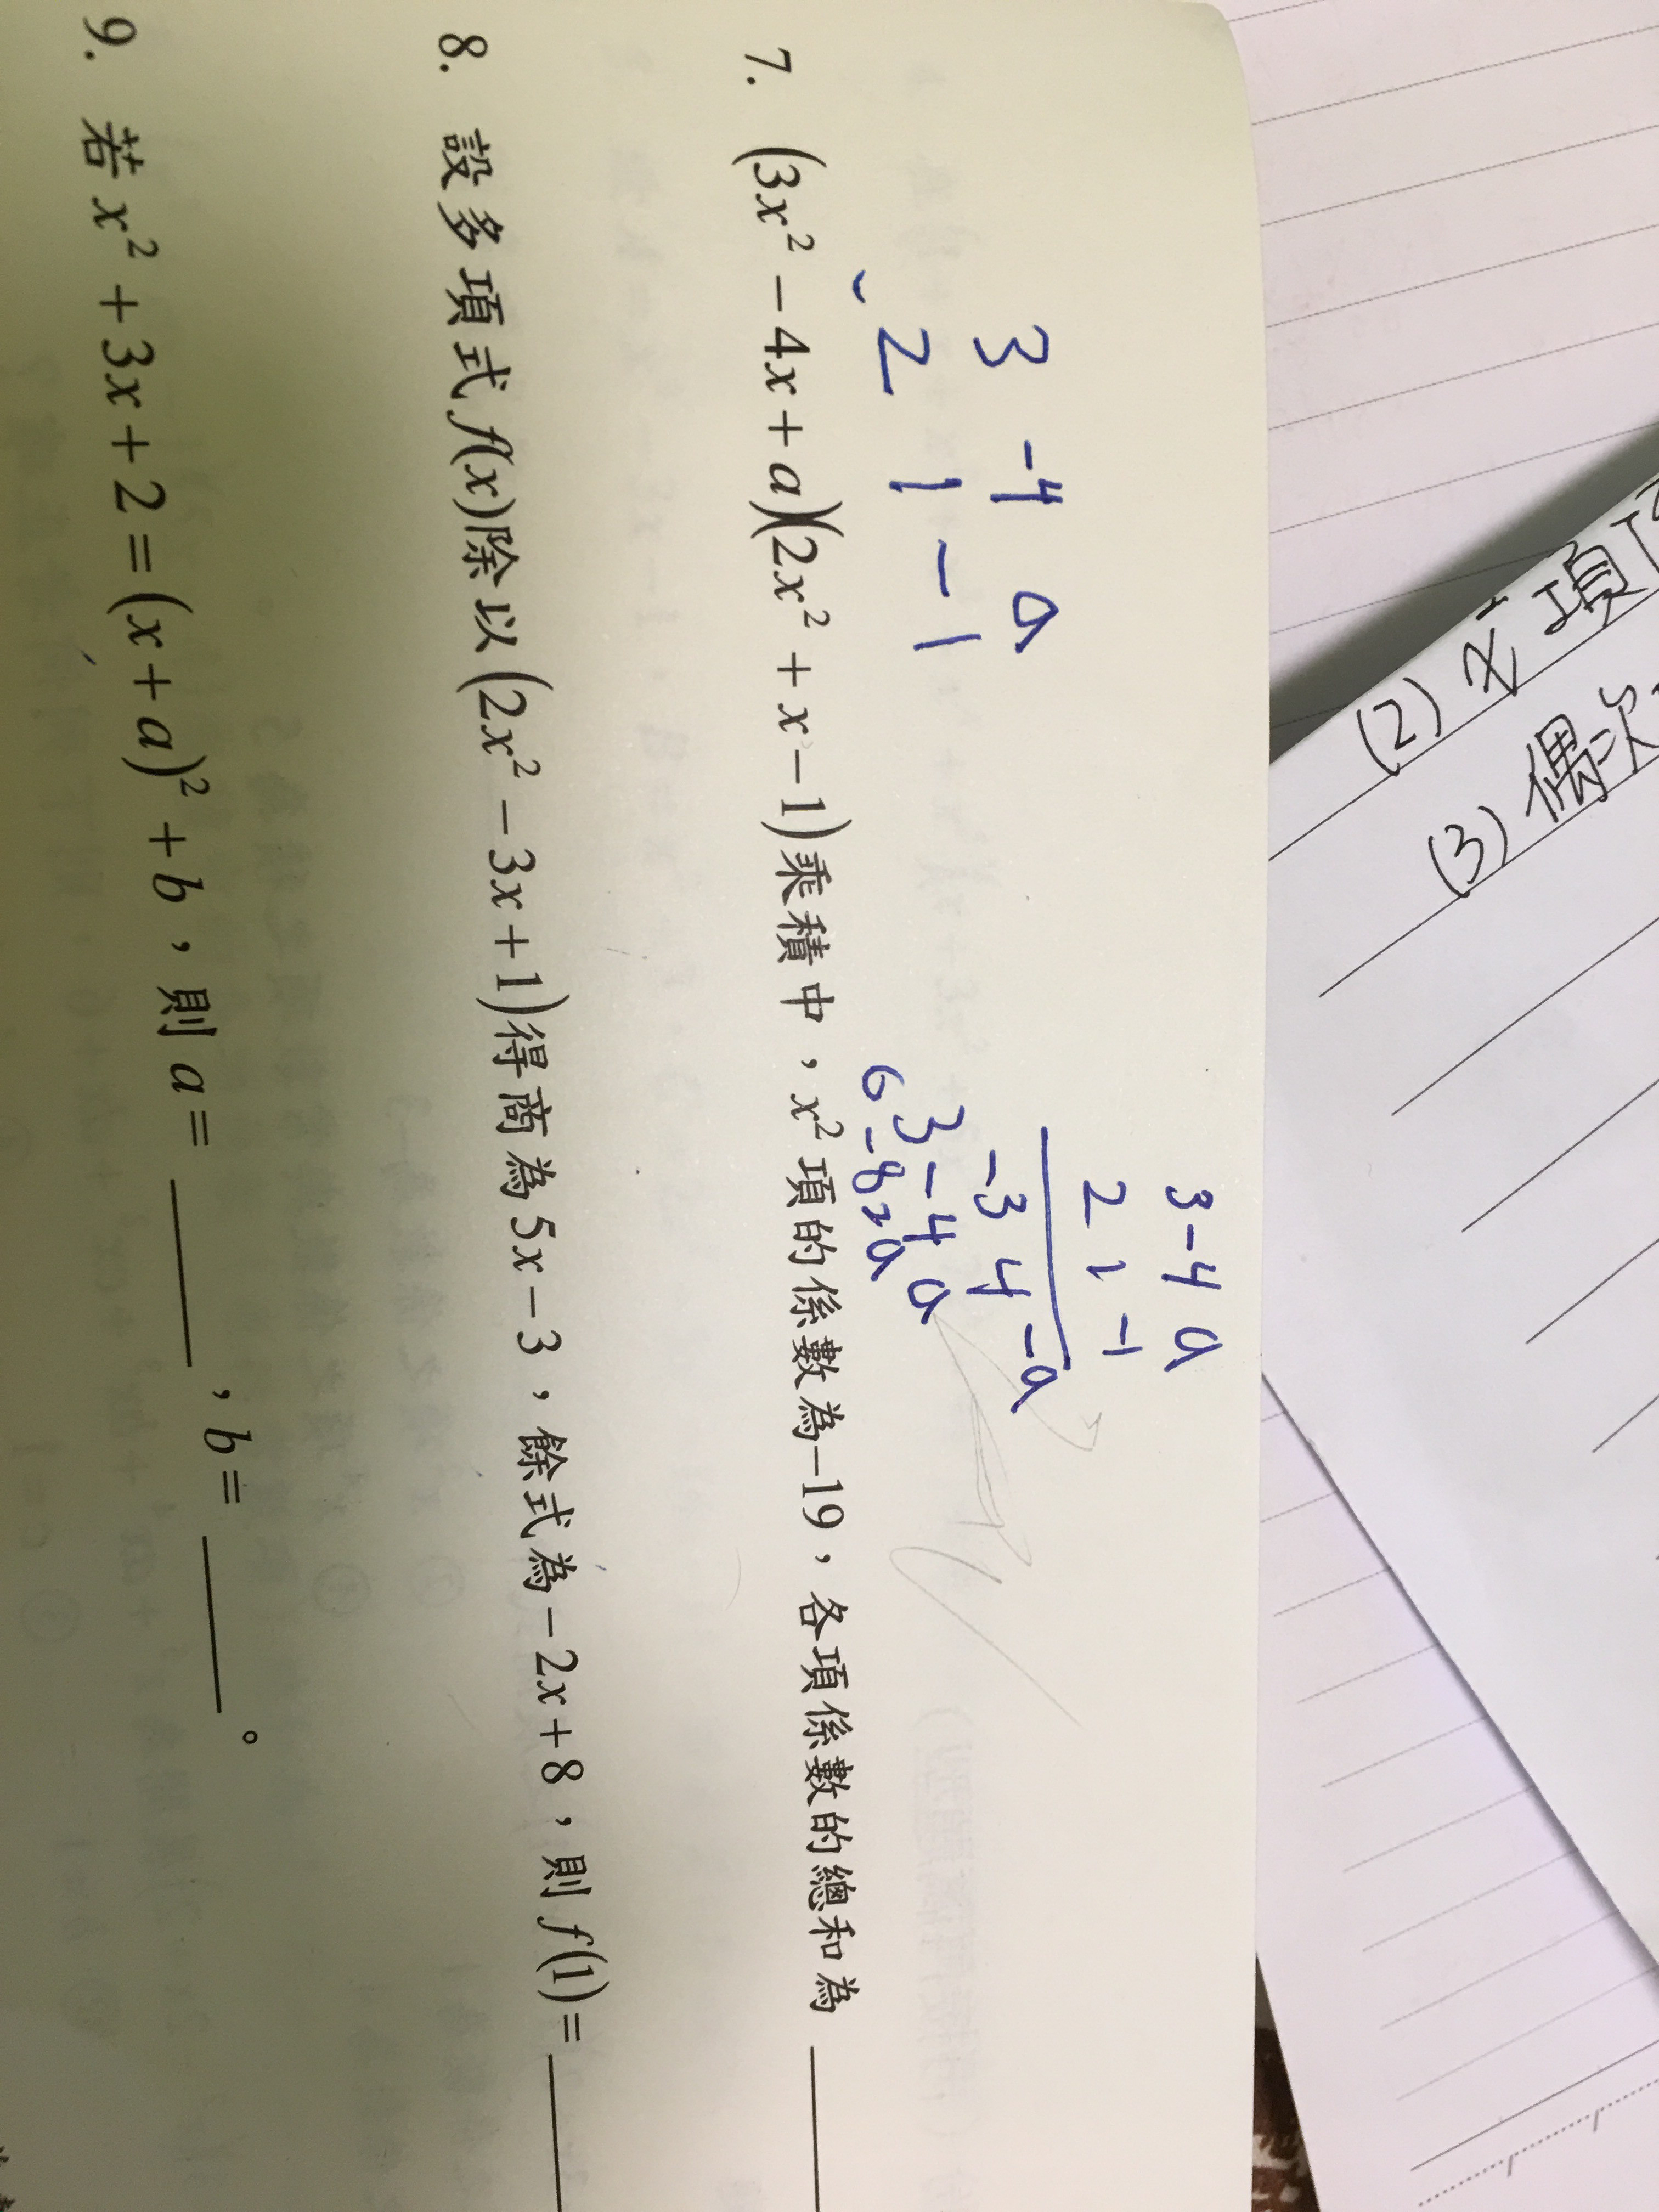 7. (3x² − 4x + a)(2x² + x − 1)乘積中，x²項的係數為−19，各項係數的總和為
3 -4 a
2 1 -1
3 -4 a
2 1 -1
-3 4 -a
3 -4 a
6 -8 2a
8. 設多項式 f(x)除以(2x² − 3x + 1)得商為5x − 3，餘式為−2x + 8，則 f(1) =
9. 若 x² + 3x + 2 = (x + a)² + b，則 a = ，b = 。
(2) x² 項
(3) 偶次